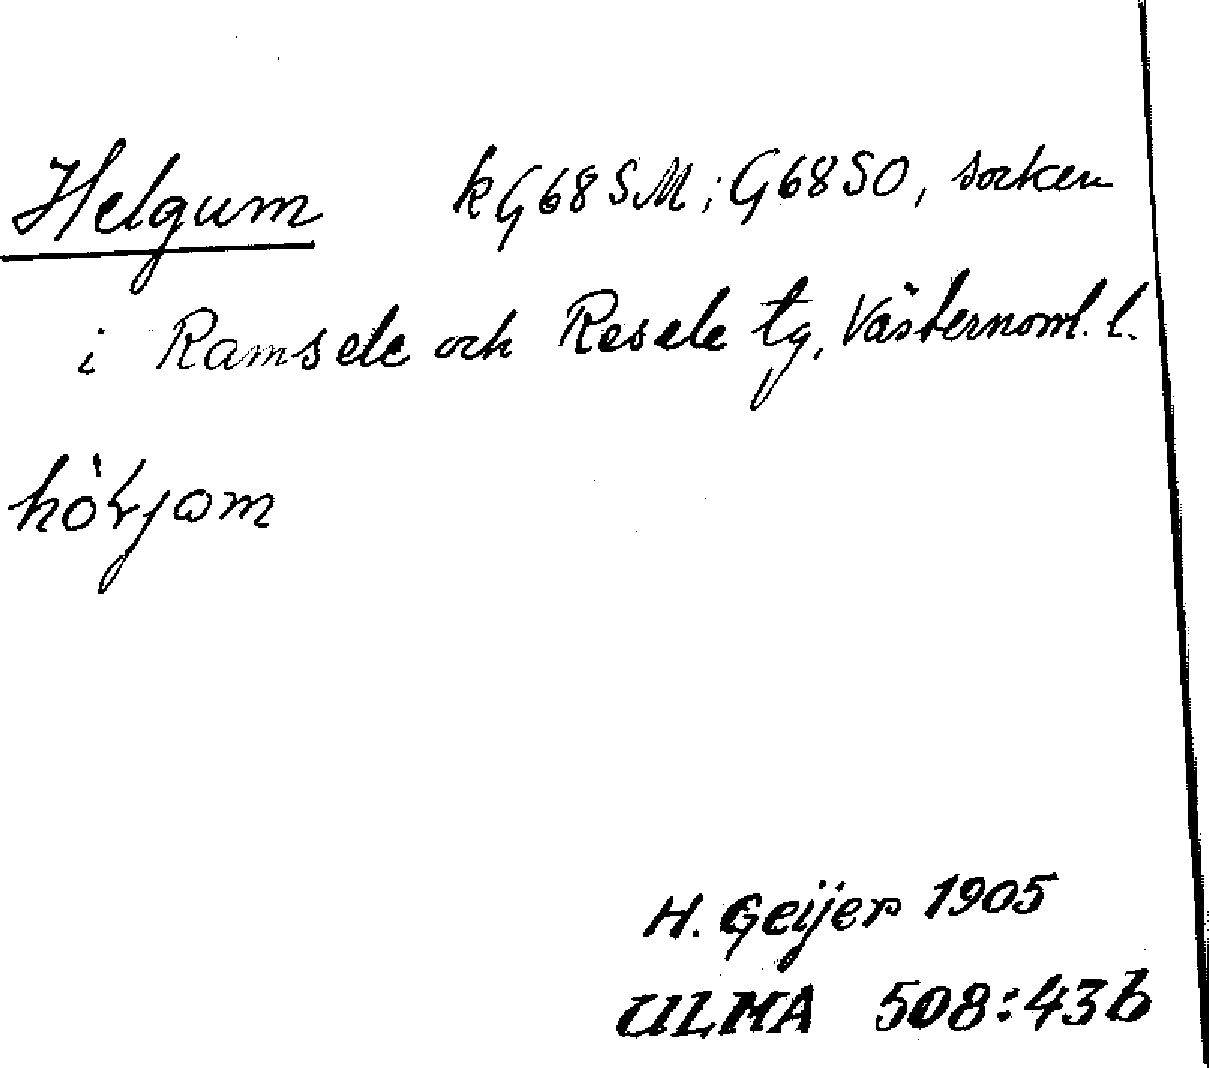 Helgum kG68SM; G68SO, socken
i Ramsele och Resele tg, Västernorrl. l.
H. Geijer 1905
ULMA 508:43b